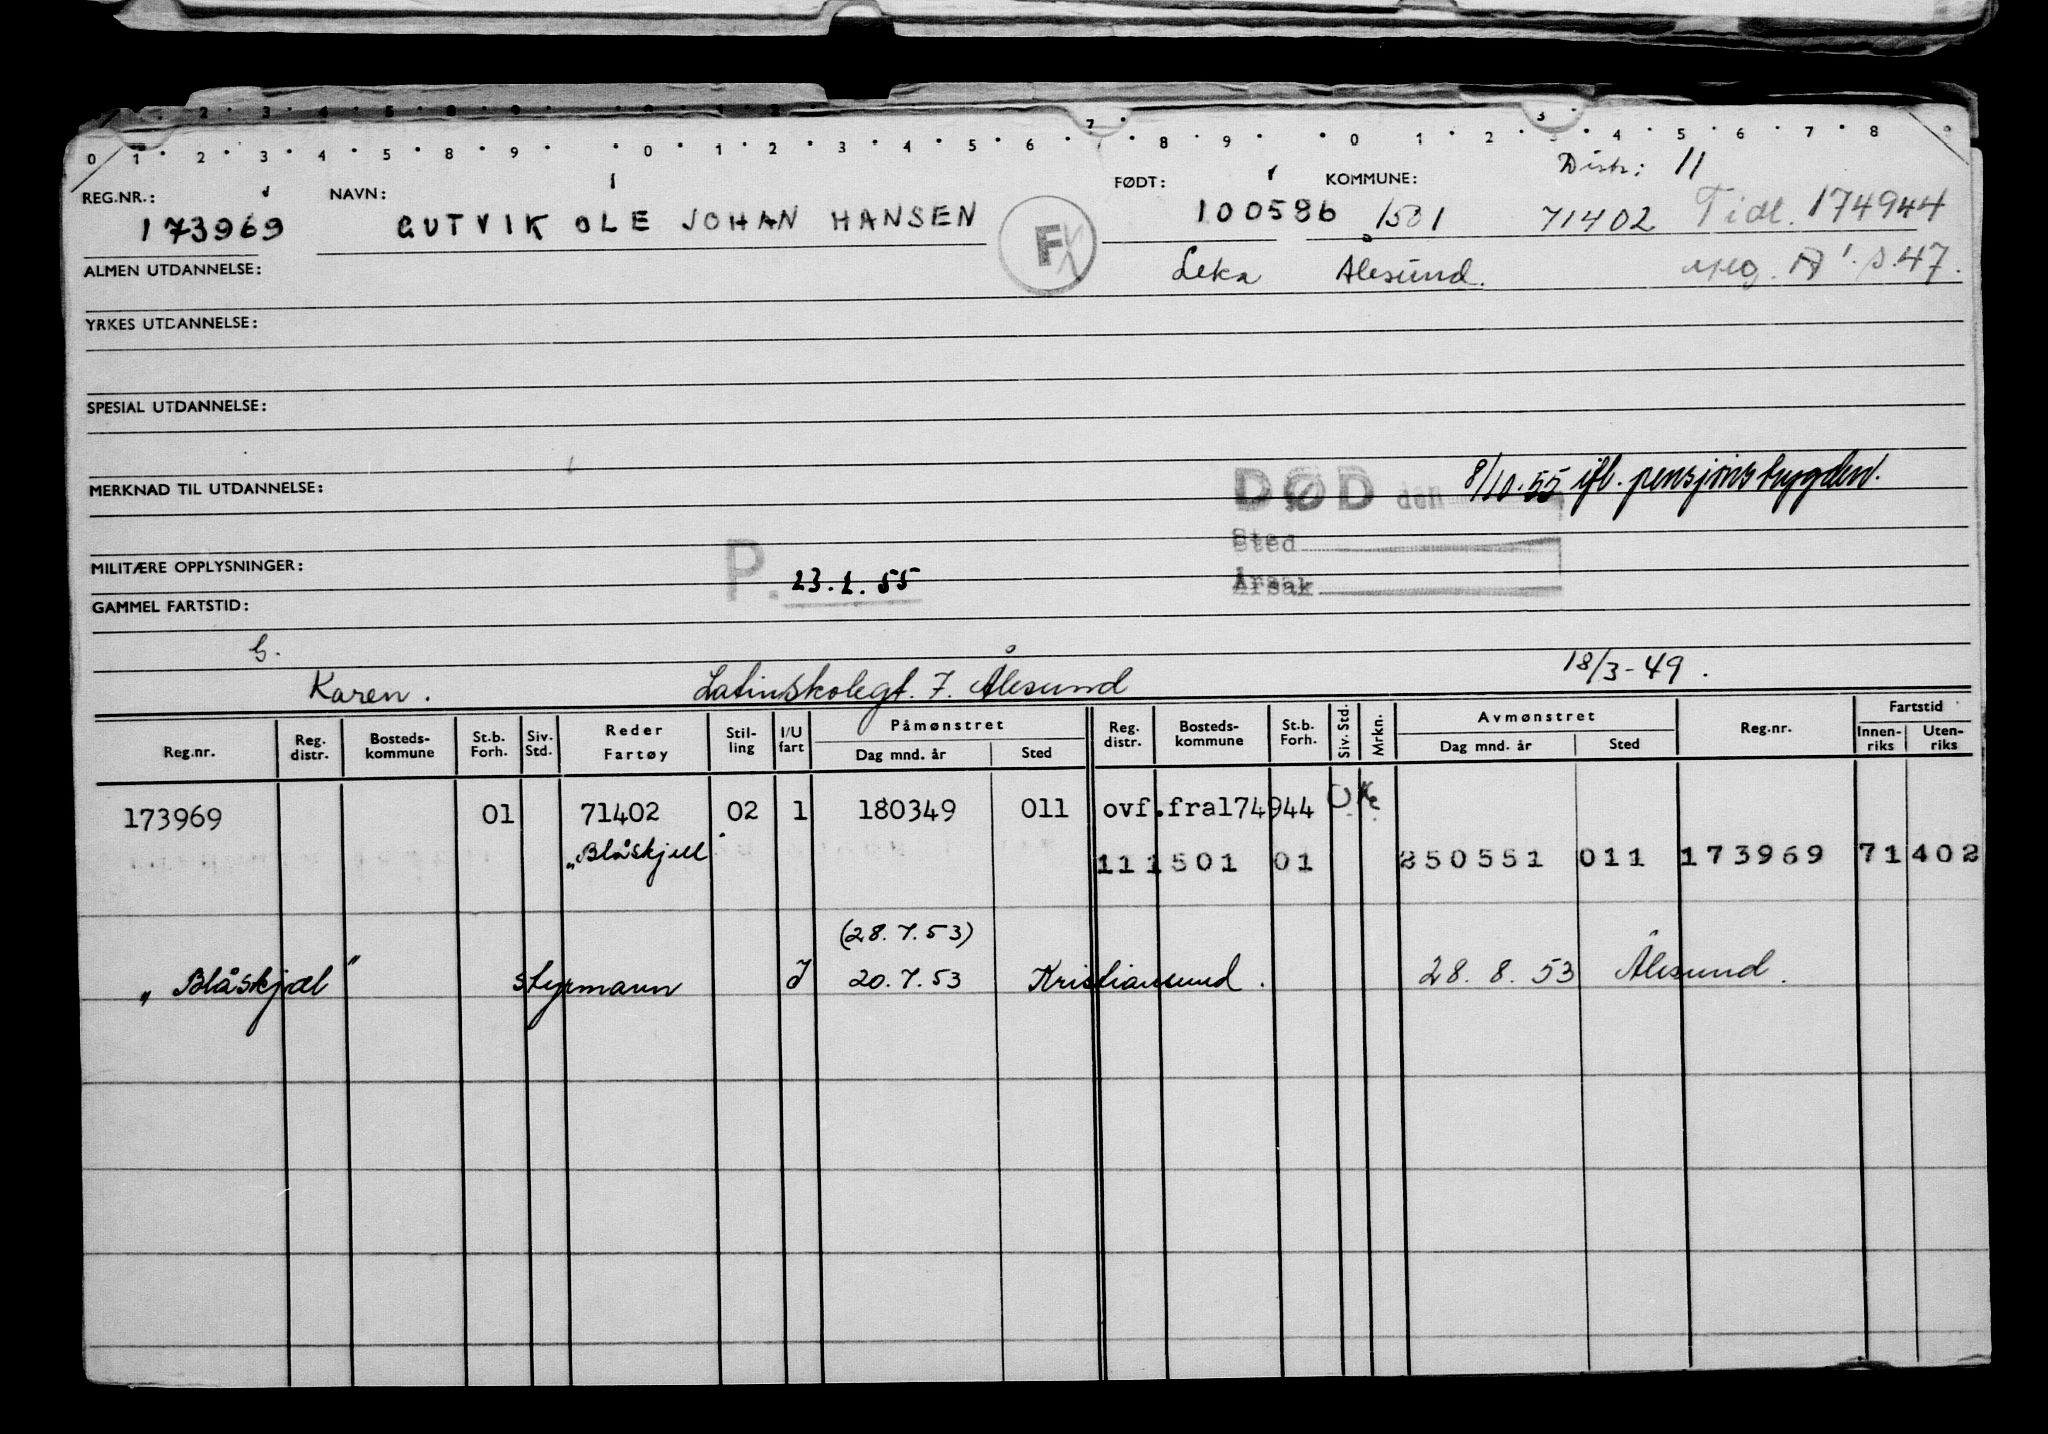 0 1 2 3 4 5 6 8 9 0 1 2 3 4 5 6 7 8 9 0 1 2 3 4 5 6 7 8
Distr: 11
REG.NR.: NAVN: FØDT: KOMMUNE:
173969 GUTVIK OLE JOHAN HANSEN 100586 1501 71402 Tidl. 174944
F
ALMEN UTDANNELSE: Leka Ålesund. 47.
YRKES UTDANNELSE:
SPESIAL UTDANNELSE:
MERKNAD TIL UTDANNELSE: DØD den 8/10.55 ifl. pensjonstrygden.
Sted
MILITÆRE OPPLYSNINGER: P. 23.2.55 Årsak
GAMMEL FARTSTID:
G.
Karen. Latinskolegt. 7. Ålesund 18/3-49.
Reg.nr. Reg. distr. Bosteds- kommune St.b. Forh. Siv. Std. Reder Fartøy Stil- ling I/U fart Påmønstret Dag mnd. år Sted Reg. distr. Bosteds- kommune St.b. Forh. Siv. Std. Mrkn. Avmønstret Dag mnd. år Sted Reg.nr. Fartstid Innen- riks Uten- riks
173969 01 71402 02 1 180349 011 ovf.fra174944
"Blåskjell" 111501 01 250551 011 173969 71402
(28.7.53)
"Blåskjæl" styrmann I 20.7.53 Kristiansund. 28.8.53 Ålesund.